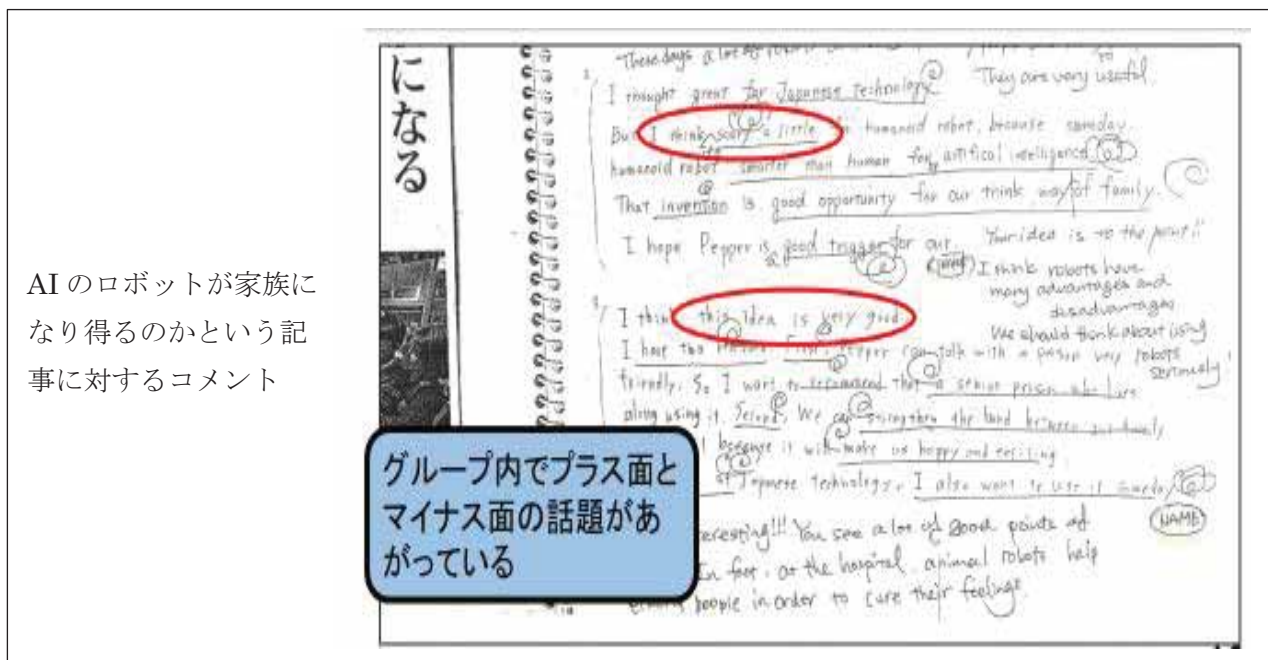 AI のロボットが家族に
なり得るのかという記
事に対するコメント
になる
These days a lot of
They are very useful.
I thought great for Japanese technology.
But I think scary a little humanoid robot, because someday
humanoid robot smarter than human for artifical intelligence
That invention is good opportunity for our think way of family.
I hope Pepper is good trigger for our
Your idea is to the point!!
I think robots have
many advantages and
disadvantages
We should think about using
robots
seriously!
I think this idea is very good.
I have two First, Pepper can talk with a person very
friendly. So I want to recommend that a senior prison who lives
along using it. Second, We can strengthen the bond between our family
because it will make us happy and
of Japanese technology. I also want to use it someday
NAME
eresting!!! You see a lot of good points of
In fact, at the hospital, animal robots help
people in order to cure their feelings.
グループ内でプラス面と
マイナス面の話題があ
がっている